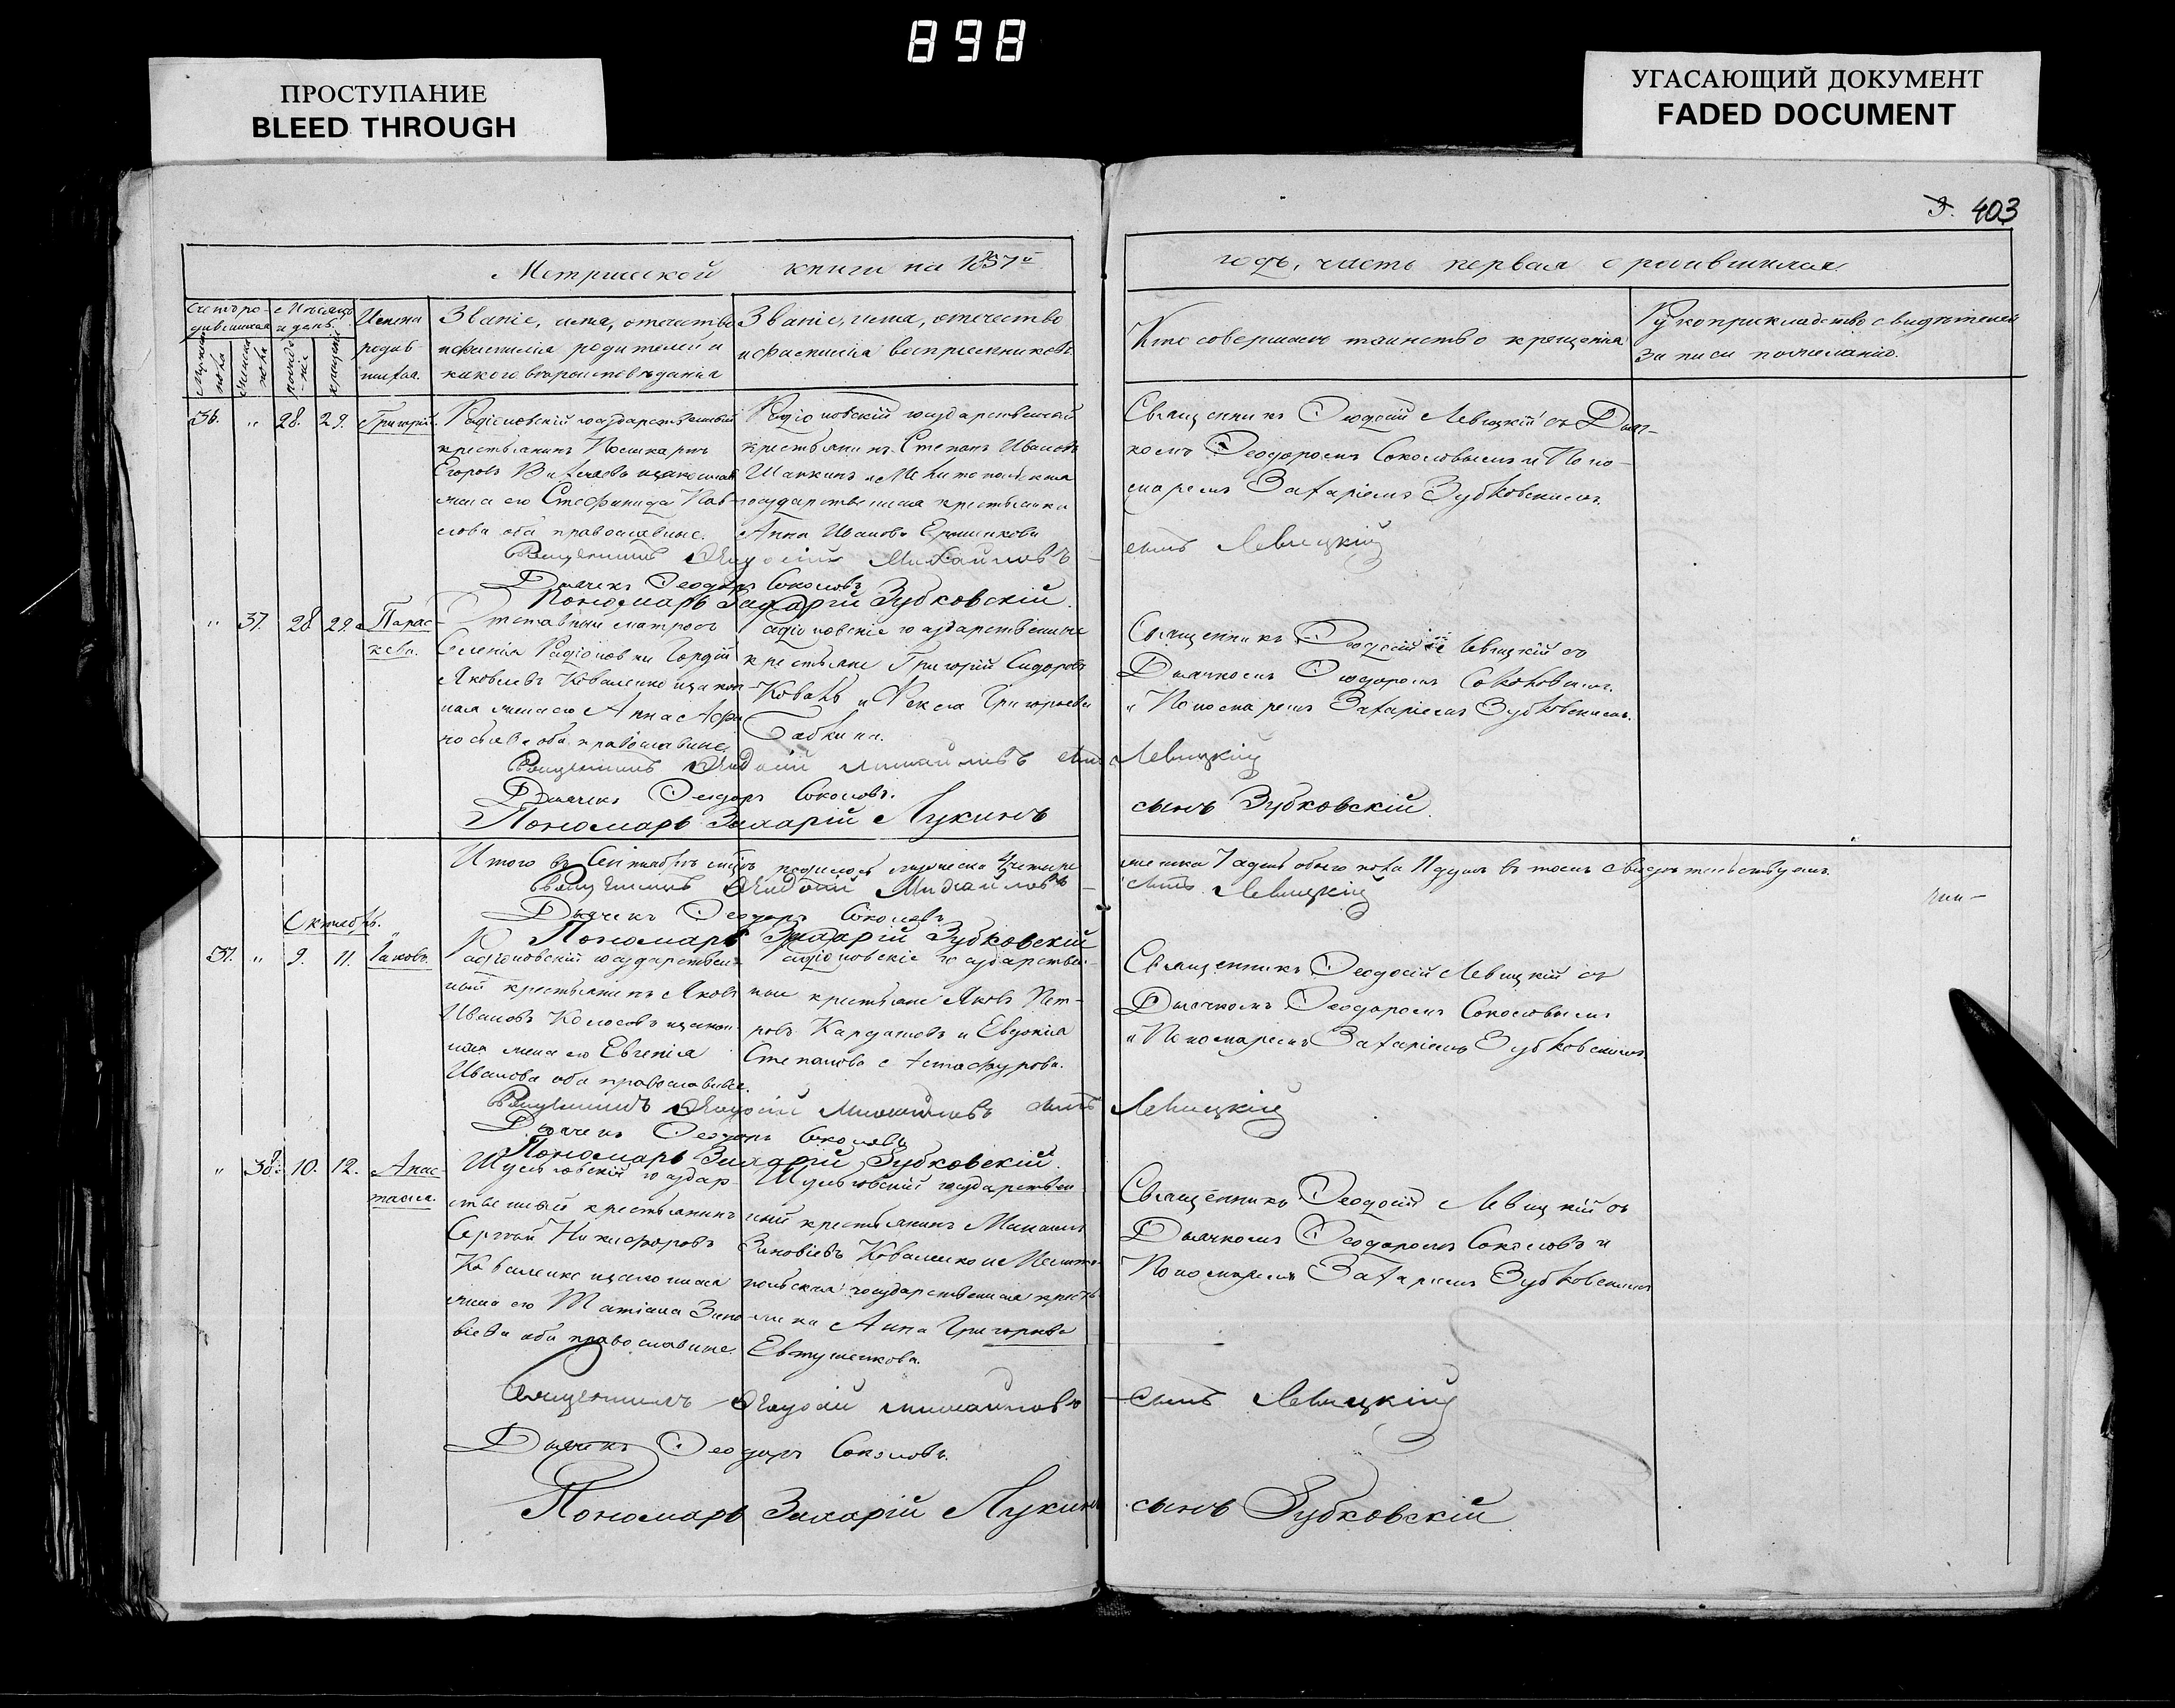 898
ПРОСТУПАНИЕ
BLEED THROUGH
УГАСАЮЩИЙ ДОКУМЕНТ
FADED DOCUMENT
3. 403
Метрической книги на 1857й
годъ, часть первая о родившихся.
Счетъ ро-
дившихся
Мѣсяцъ
и день.
Имена
родив-
шихся.
мужеска
пола
женска
пола
рожде-
нія
крещенія
Званіе, имя, отечество
и фамилія родителей и
какого вѣроисповѣданія
Званіе, имя, отечество
и фамилія воспріемниковъ
Кто совершалъ таинство крещенія
Рукоприкладство свидѣтелей
записи по желанію.
36. " 28. 29. Григорій.
Радіоновскій государственный
крестьянинъ
Егоровъ и законная
жена его Стефанида Пав-
лова оба православные.
Радіоновскій государственный
крестьянинъ Степанъ Ивановъ
Шапкинъ и Мелитопольская
государственная крестьянка
Анна Иванова
Священникъ Ѳеодосій Левицкій съ Дьяч-
комъ Ѳеодоромъ Соколовымъ и Поно-
маремъ Захаріемъ Зубковскимъ.
Священникъ Ѳеодосій Михайловъ
сынъ Левицкій
Дьячекъ Ѳеодоръ Соколовъ
Пономарь Захарій Зубковскій.
" 37. 28. 29. Парас-
кева.
Отставный матросъ
Селенія Радіоновки Сергій
Яковлевъ Коваленко и закон-
ная жена его Анна Афа-
насьева оба православные.
Радіоновскіе государственные
крестьяне Григорій Сидоровъ
Коваль и Фекла Григорьева
Бабкина.
Священникъ Ѳеодосій Левицкій съ
Дьячкомъ Ѳеодоромъ Соколовымъ.
и Пономаремъ Захаріемъ Зубковскимъ.
Священникъ Ѳеодосій Михайловъ сынъ Левицкій
Дьячекъ Ѳеодоръ Соколовъ.
Пономарь Захарій Лукинъ
сынъ Зубковскій.
Итого въ Сентябрѣ мѣсяцѣ родилось мужеска четыре
женска 7 а душъ обоего пола 11 душъ въ томъ свидѣтельствуемъ.
Священникъ Ѳеодосій Михайловъ
сынъ Левицкій
Дьячекъ Ѳеодоръ Соколовъ
Пономарь Захарій Зубковскій
Октябрь.
37. " 9. 11. Іаковъ.
Радіоновскій государствен-
ный крестьянинъ Яковъ
Ивановъ Колосовъ и закон-
ная жена его Евгенія
Иванова оба православные.
Радіоновскіе государствен-
ные крестьяне Яковъ Пет-
ровъ Кардашовъ и Евдокія
Степанова
Священникъ Ѳеодосій Левицкій съ
Дьячкомъ Ѳеодоромъ Соколовымъ
и Пономаремъ Захаріемъ Зубковскимъ
Священникъ Ѳеодосій Михайловъ сынъ Левицкій
Дьячекъ Ѳеодоръ Соколовъ
Пономарь Захарій Зубковскій.
" 38. 10. 12. Анас-
тасія.
государ-
ственный крестьянинъ
Сергѣй Никифоровъ
Коваленко и законная
жена его Татіана Зино-
віева оба православные.
государствен-
ный крестьянинъ
Зиновіевъ Коваленко и Мелито-
польская государственная кресть-
янка Анна Григорьева
Евтушенкова.
Священникъ Ѳеодосій Левицкій съ
Дьячкомъ Ѳеодоромъ Соколовъ и
Пономаремъ Захаріемъ Зубковскимъ
Священникъ Ѳеодосій Михайловъ
сынъ Левицкій
Дьячекъ Ѳеодоръ Соколовъ.
Пономарь Захарій Лукинъ
сынъ Зубковскій